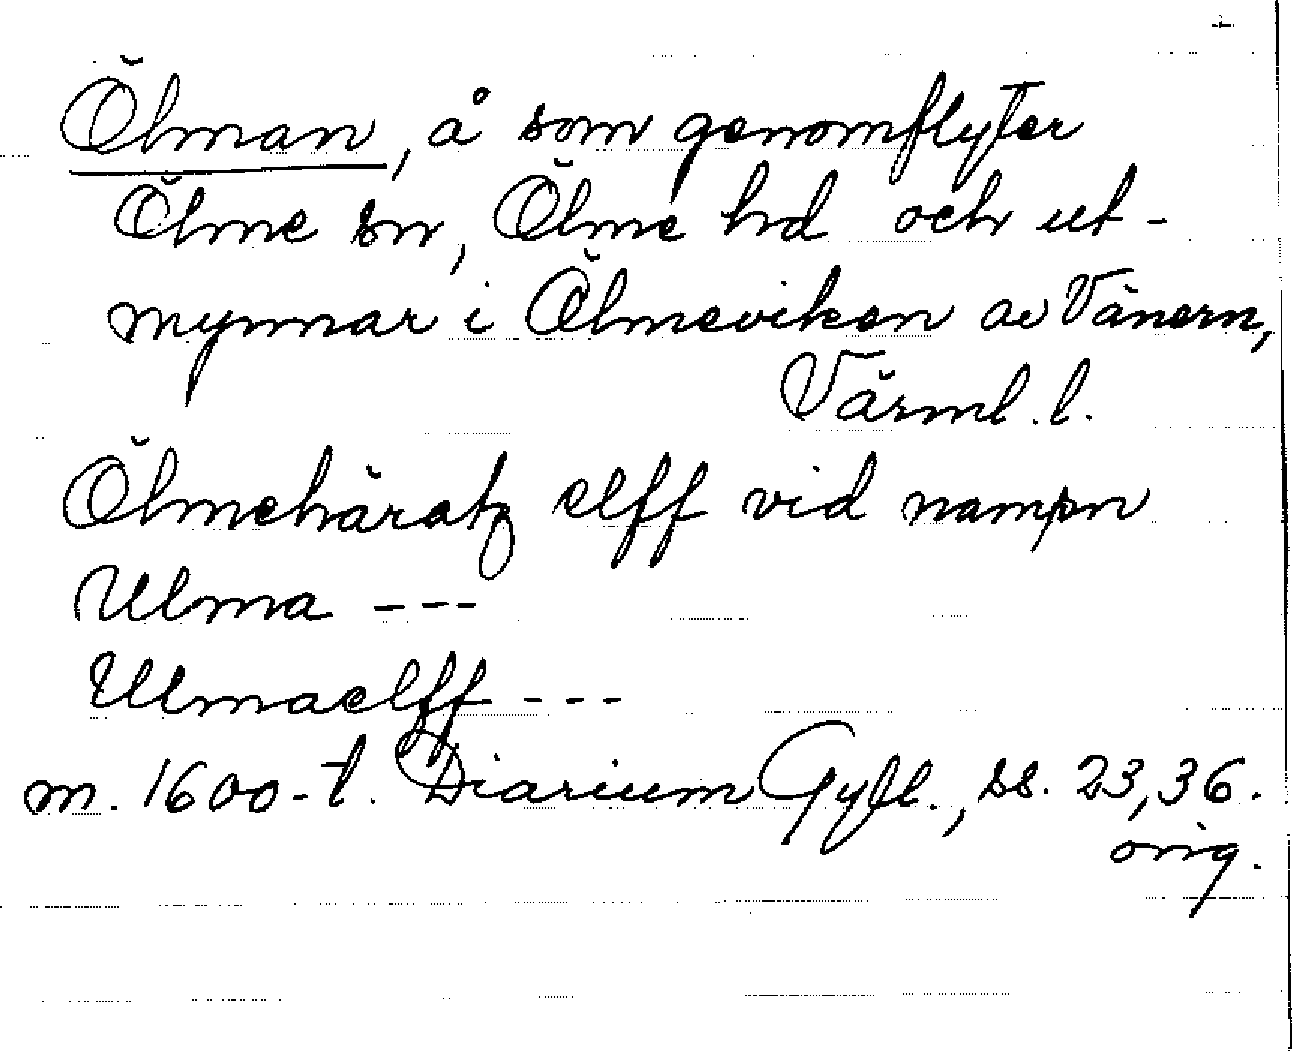 Ölman, å som genomflyter
Ölme sn, Ölme hd och ut-
mynnar i Ölmeviken av Vänern,
Värml. l.
Ölmehäratz elff vid nampn
Ulma ---
Ulmaelff ---
m. 1600-t. Diarium Gyll., ss. 23, 36.
orig.